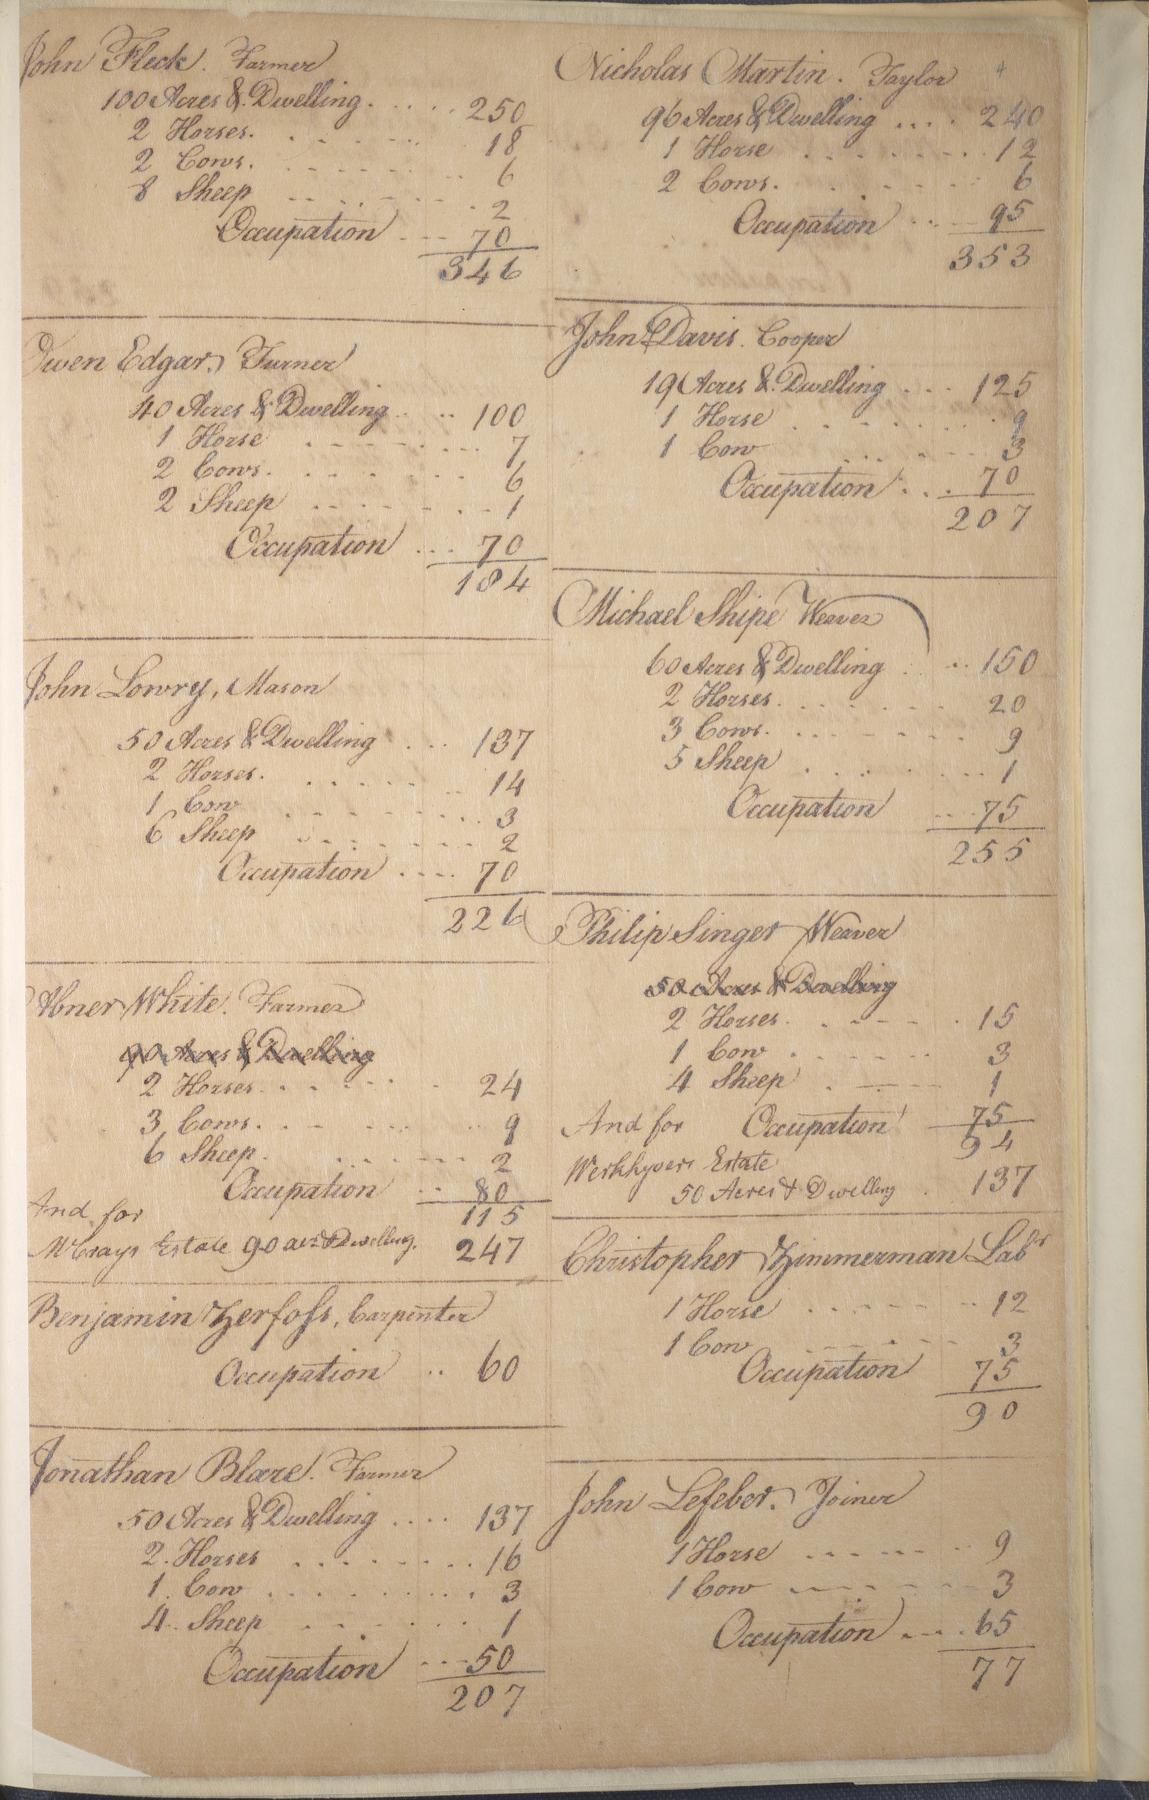 John Fleck. Farmer
100 Acres & Dwelling. .... 250
2 Horses. . . . . . 18
2 Cows. . . . . . 6
8 Sheep . . . . . 2
Occupation ... 70
346
Owen Edgar, Turner
40 Acres & Dwelling .... 100
1 Horse . . . . . 7
2 Cows. . . . . . 6
2 Sheep . . . . . 1
Occupation ... 70
184
John Lowry, Mason
50 Acres & Dwelling ... 137
2 Horses. . . . . . 14
1 Cow . . . . . 3
6 Sheep . . . . . 2
Occupation .... 70
226
Abner White. Farmer
90 Acres & Dwelling
2 Horses. . . . . . 24
3 Cows. . . . . . 9
6 Sheep. . . . . . 2
Occupation .. 80
115
And for
McCrays Estate 90 acrs & Dwelling. 247
Benjamin Zerfoss, Carpenter
Occupation .. 60
Jonathan Blare. Farmer
50 Acres & Dwelling .... 137
2. Horses . . . . . 16
1. Cow . . . . . 3
4. Sheep . . . . . 1
Occupation ... 50
207
Nicholas Martin. Taylor
96 Acres & Dwelling .... 240
1 Horse . . . . . 12
2 Cows. . . . . . 6
Occupation ... 95
353
John Davis. Cooper
19 Acres & Dwelling ... 125
1 Horse . . . . . 9
1 Cow . . . . . 3
Occupation ... 70
207
Michael Shipe Weaver
60 Acres & Dwelling ... 150
2 Horses. . . . . . 20
3 Cows. . . . . . 9
5 Sheep . . . . . 1
Occupation ... 75
255
Philip Singer Weaver
50 Acres & Dwelling
2 Horses. . . . . . 15
1 Cow . . . . . 3
4 Sheep . . . . . 1
And for Occupation 75
94
Estate
50 Acres & Dwelling . 137
Christopher Zimmerman Labr
1 Horse . . . . . 12
1 Cow . . . . . 3
Occupation 75
90
John Lefeber. Joiner
1 Horse . . . . . 9
1 Cow . . . . . 3
Occupation .... 65
77